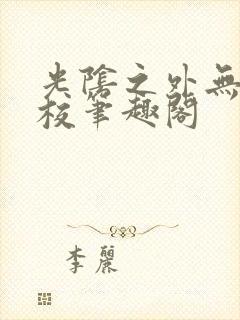 光陰之外無
校筆趣閣
李麗